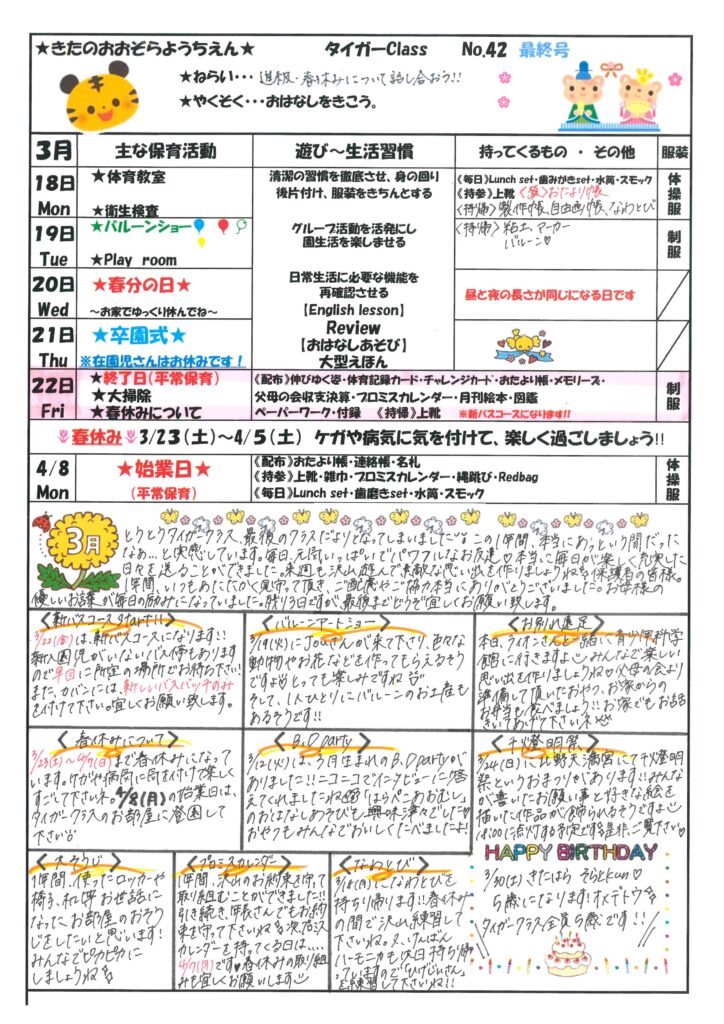 ★きたのおおぞらようちえん★ タイガーClass No.42 最終号
★ねらい・・・進級・春休みについて話し合おう!!
★やくそく・・・おはなしをきこう。
3月 主な保育活動 遊び〜生活習慣 持ってくるもの ・ その他 服装
18日 Mon
★体育教室
★衛生検査
清潔の習慣を徹底させ、身の回り
後片付け、服装をきちんとする
《毎日》Lunch set・歯みがきset・水筒・スモック
《持参》上靴 おたより帳
《持帰》製作帳、自由画帳、なわとび
体操服
19日 Tue
★バルーンショー
★Play room
グループ活動を活発にし
園生活を楽しませる
《持帰》粘土、マーカー
バルーン♡
制服
20日 Wed
★春分の日★
〜お家でゆっくり休んでね〜
日常生活に必要な機能を
再確認させる
【English lesson】
昼と夜の長さが同じになる日です
21日 Thu
★卒園式★
※在園児さんはお休みです!
Review
【おはなしあそび】
大型えほん
22日 Fri
★終了日(平常保育)
★大掃除
★春休みについて
《配布》伸びゆく姿・体育記録カード・チャレンジカード・おたより帳・メモリーズ・
父母の会収支決算・プロミスカレンダー・月刊絵本・図鑑
ペーパーワーク・付録 《持帰》上靴 ※新バスコースになります!!
制服
春休み 3/23(土)〜4/5(土) ケガや病気に気を付けて、楽しく過ごしましょう!!
4/8 Mon
★始業日★
(平常保育)
《配布》おたより帳・連絡帳・名札
《持参》上靴・雑巾・プロミスカレンダー・縄跳び・Redbag
《毎日》Lunch set・歯磨きset・水筒・スモック
体操服
3月
とうとうタイガークラス、最後のクラスだよりとなってしまいました この1年間、本当にあっという間だった
なぁ…と実感しています。毎日、元気いっぱいでパワフルなお友達♡本当に毎日が楽しく充実した
日々を送ることができました。来週も沢山遊んで素敵な思い出を作りましょうね 保護者の皆様。
1年間、いつもあたたかく見守って頂き、ご配慮やご協力本当にありがとうございました。お母様の
優しいお言葉が毎日の励みになっていました。残り3日ですが、最後までどうぞ宜しくお願い致します。
<新バスコースstart!!>
3/22(金)は、新バスコースになります!!
新入園児がいないバス停もあります
ので早目に所定の場所でお待ち下さい!
また、カバンには、新しいバスバッチのみ
を付けて下さい。宜しくお願い致します。
<バルーンアートショー>
3/19(火)にJOさんが来て下さり、色々な
動物やお花などを作ってもらえるそう
ですよ とっても楽しみですね
そして、1人ひとりにバルーンのお土産も
あるそうです!!
<お別れ遠足>
本日、ライオンさんと一緒に青少年科学
館に行きますよ みんなで楽しい
思い出を作りましょうね♡父母の会より
準備して頂いたおやつ、お家からの
お弁当も食べましょう!!お家でもお話
きいてあげて下さいネ
<春休みについて>
3/23(土)〜4/7(日)まで春休みになって
います。ケガや病気に気を付けて楽しく
すごして下さいネ。4/8(月)の始業日は、
タイガークラスのお部屋に登園して
下さい
<B.D party>
3/12(火)は、3月生まれのB.D partyが
ありました!!ニコニコでインタビューに答
えてくれましたね「はらぺこあおむし」
のおはなしあそびも、興味津々でした♡
おやつもみんなでおいしくたべましたよ!
<千燈明祭>
3/24(日)に北野天満宮にて千燈明
祭というおまつりがあります!!みんな
が書いたお願い事と好きな絵を
描いた作品が飾られるそうですよ
18:00に点灯する予定です 是非、ご覧下さい♡
<大そうじ>
1年間、使ったロッカーや
椅子、机等お世話に
なったお部屋のおそう
じをしたいと思います!
みんなでピカピカに
しましょうね
<プロミスカレンダー>
1年間、沢山のお約束を守って
取り組むことができました!!
引き続き、年長さんでもお約
束を守って下さいね 次プロミス
カレンダーを持ってくる日は…
です♥春休みの取り組
みも宜しくお願いします
<なわとび>
3/18(月)になわとびを
持ち帰ります!!春休み
の間で沢山練習して
下さいね。又、けんばん
ハーモニカも本日持ち帰っ
ていますので「ひげじいさん」
を練習して下さいね!!
HAPPY BIRTHDAY
3/30(土) きたはら そらとkun♡
5歳になります!オメデトウ
タイガークラス全員5歳です!!